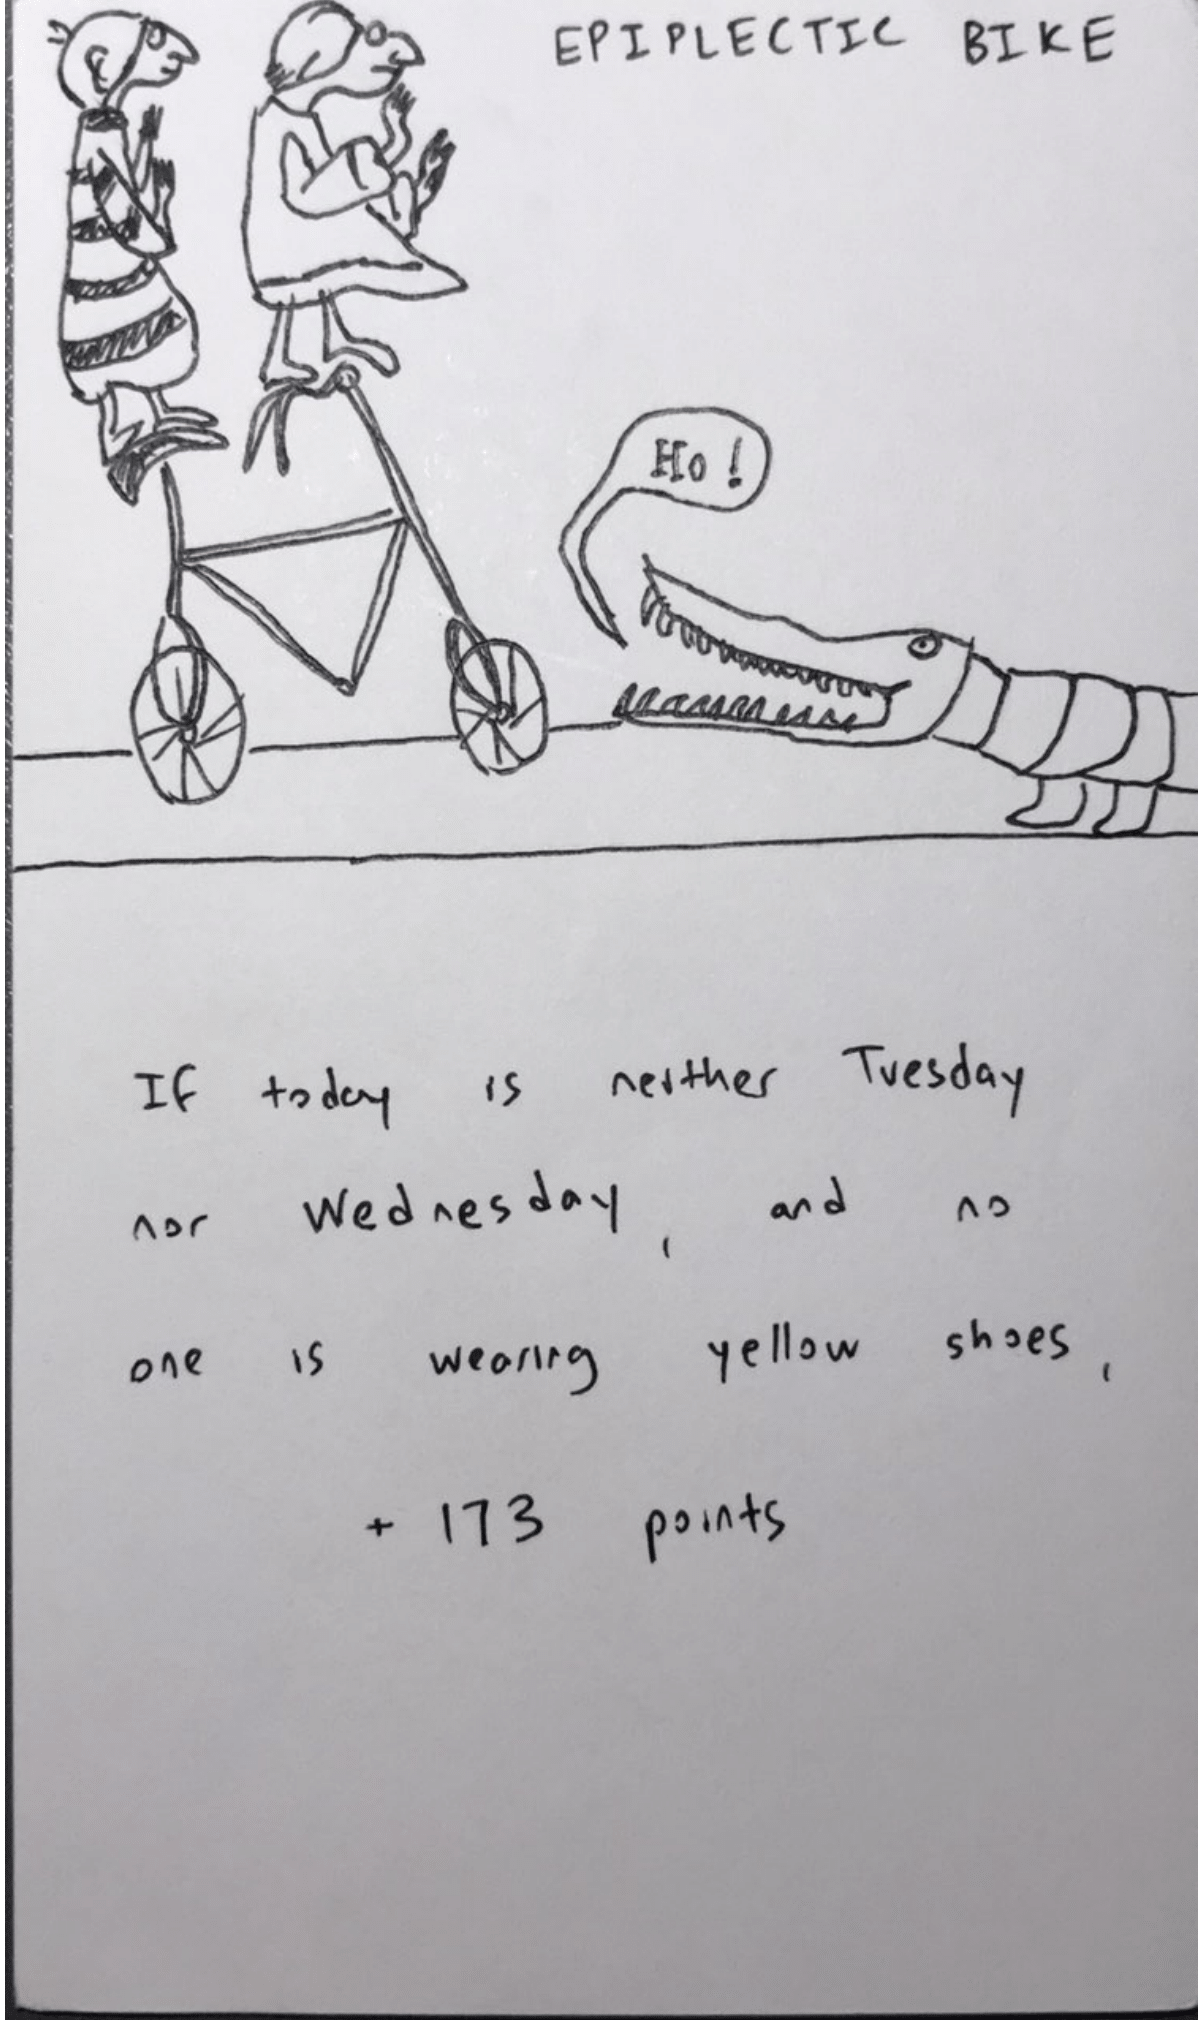 EPIPLECTIC BIKE
Ho!
If today is neither Tuesday
nor Wednesday, and no
one is wearing yellow shoes,
+ 173 points